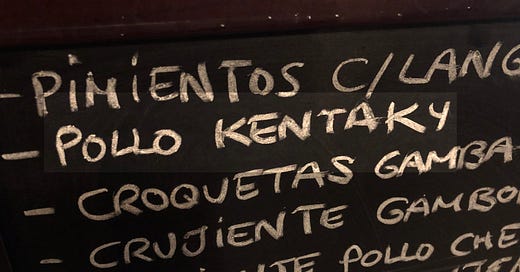 - PIMIENTOS C/LANG
- POLLO KENTAKY
- CROQUETAS GAMBA
- CRUJIENTE GAMBO
POLLO CHE